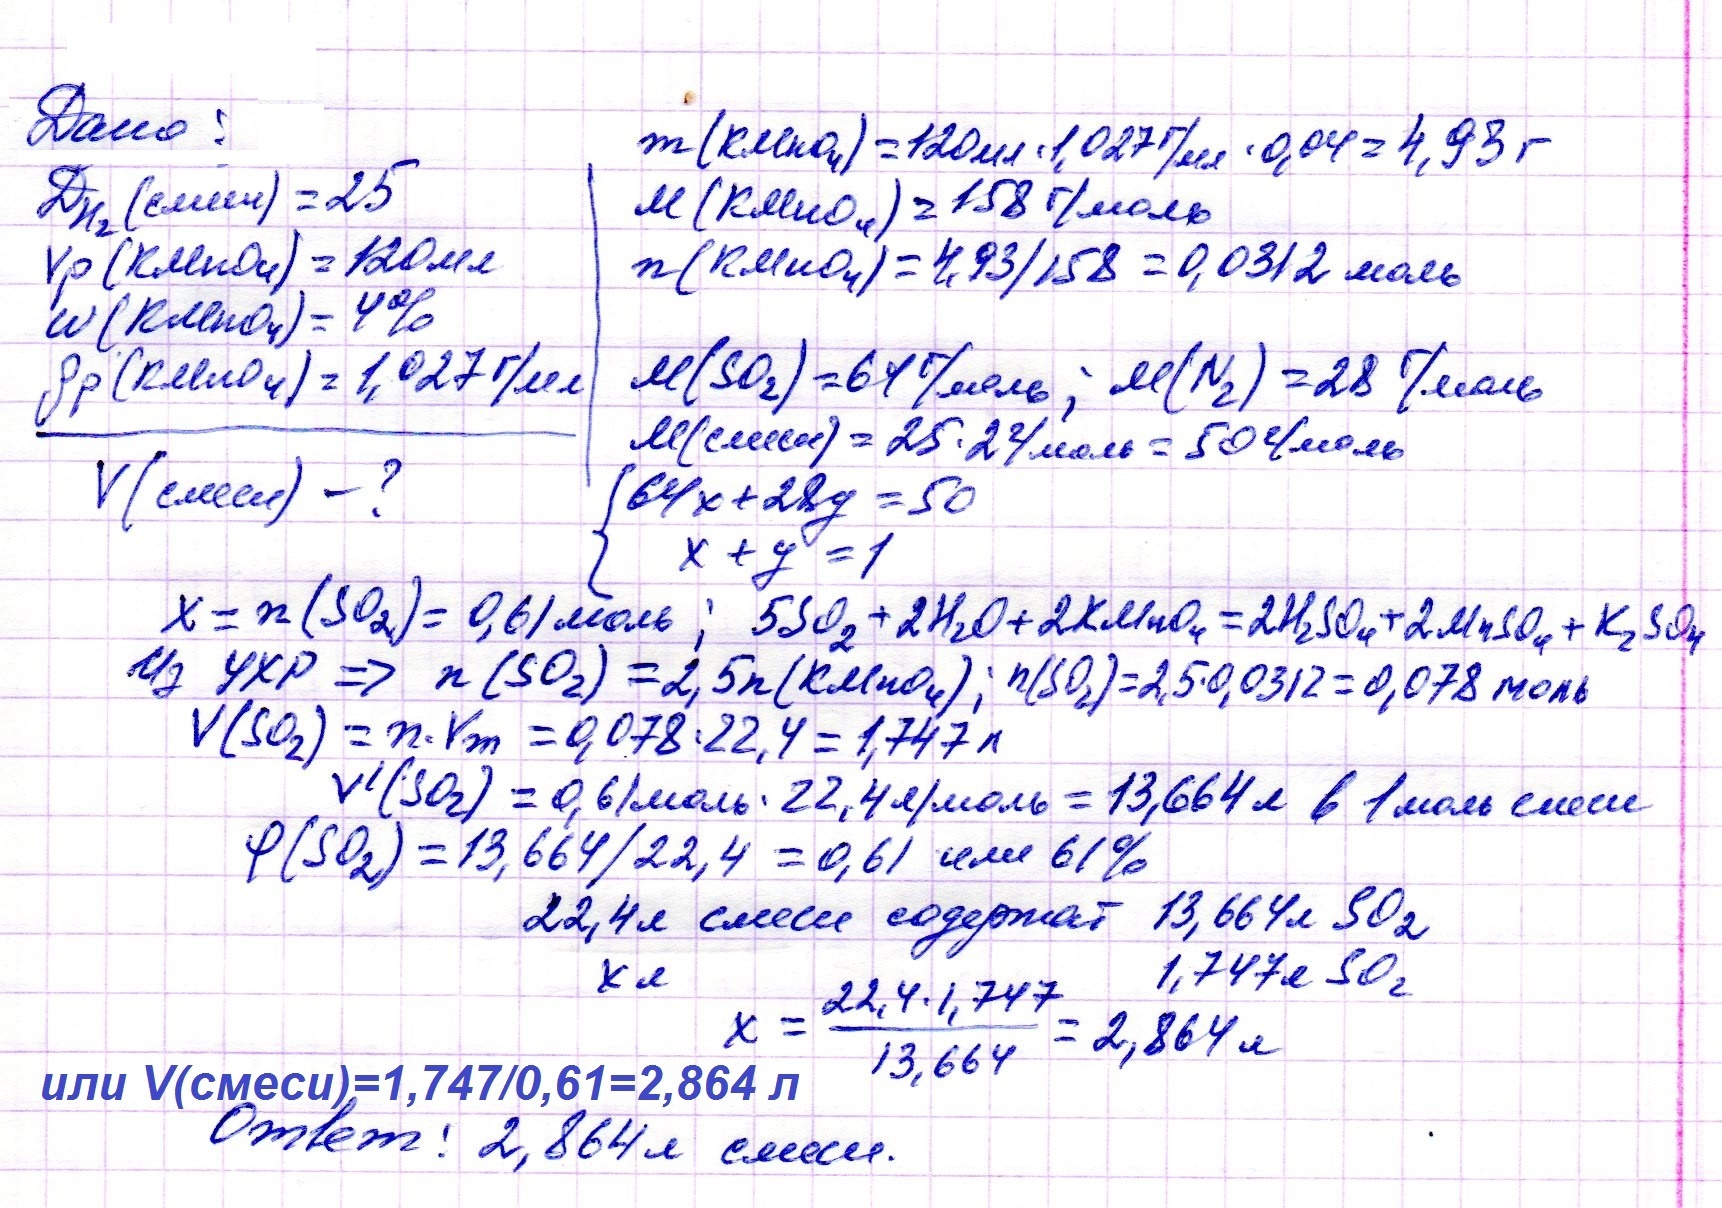 Дано:
D_H₂(смеси) = 25
Vр(KMnO₄) = 120 мл
w(KMnO₄) = 4%
ρр(KMnO₄) = 1,027 г/мл
V(смеси) – ?
m(KMnO₄) = 120 мл · 1,027 г/мл · 0,04 = 4,93 г
M(KMnO₄) = 158 г/моль
n(KMnO₄) = 4,93/158 = 0,0312 моль
M(SO₂) = 64 г/моль; M(N₂) = 28 г/моль
M(смеси) = 25·2 г/моль = 50 г/моль
{ 64x + 28y = 50
x + y = 1
x = n(SO₂) = 0,61 моль; 5SO₂ + 2H₂O + 2KMnO₄ = 2H₂SO₄ + 2MnSO₄ + K₂SO₄
Из УХР => n(SO₂) = 2,5n(KMnO₄); n(SO₂) = 2,5·0,0312 = 0,078 моль
V(SO₂) = n·Vm = 0,078·22,4 = 1,747 л
V'(SO₂) = 0,61 моль · 22,4 л/моль = 13,664 л в 1 моль смеси
φ(SO₂) = 13,664/22,4 = 0,61 или 61%
22,4 л смеси содержат 13,664 л SO₂
x л 1,747 л SO₂
x = 22,4·1,747 / 13,664 = 2,864 л
или V(смеси)=1,747/0,61=2,864 л
Ответ: 2,864 л смеси.